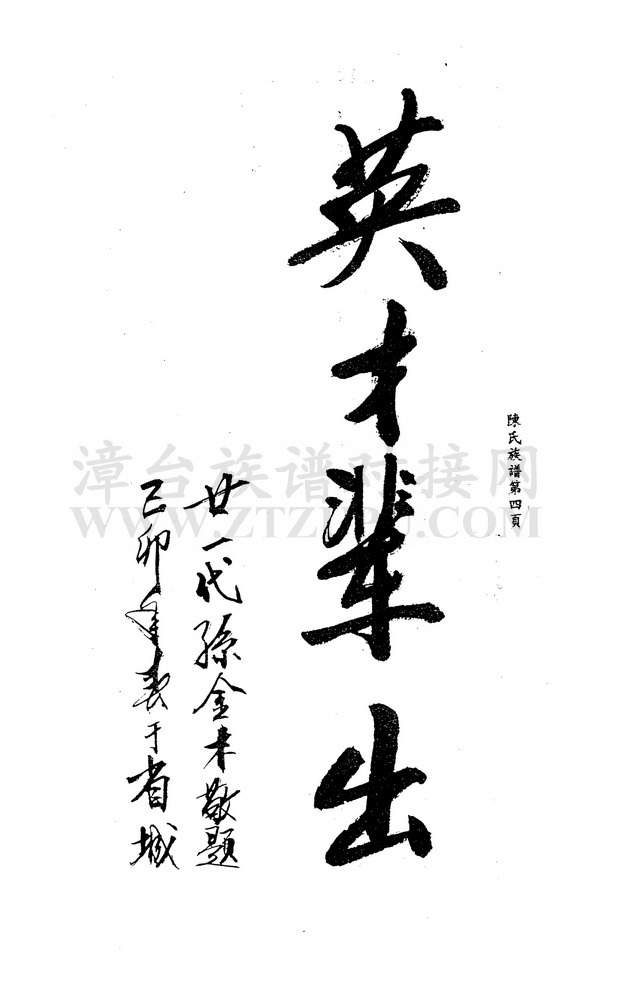 陳氏族譜第四頁
英才辈出
廿一代孫金来敬题
己卯年于省城
漳台族谱对接网
WWW.ZTZUPU.COM